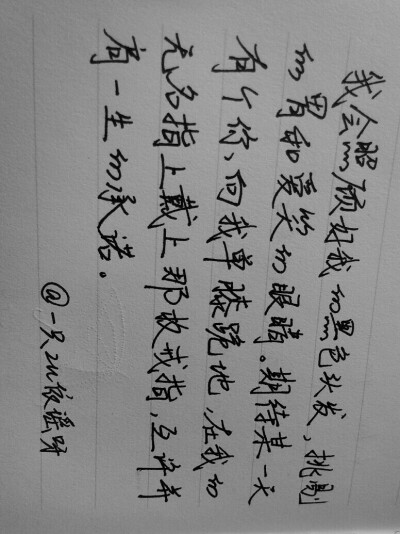 我会照顾好我的黑色头发、挑剔
的胃和爱笑的眼睛。期待某一天
有个你、向我单膝跪地,在我的
无名指上戴上那枚戒指,互许并
肩一生的承诺。
@一只